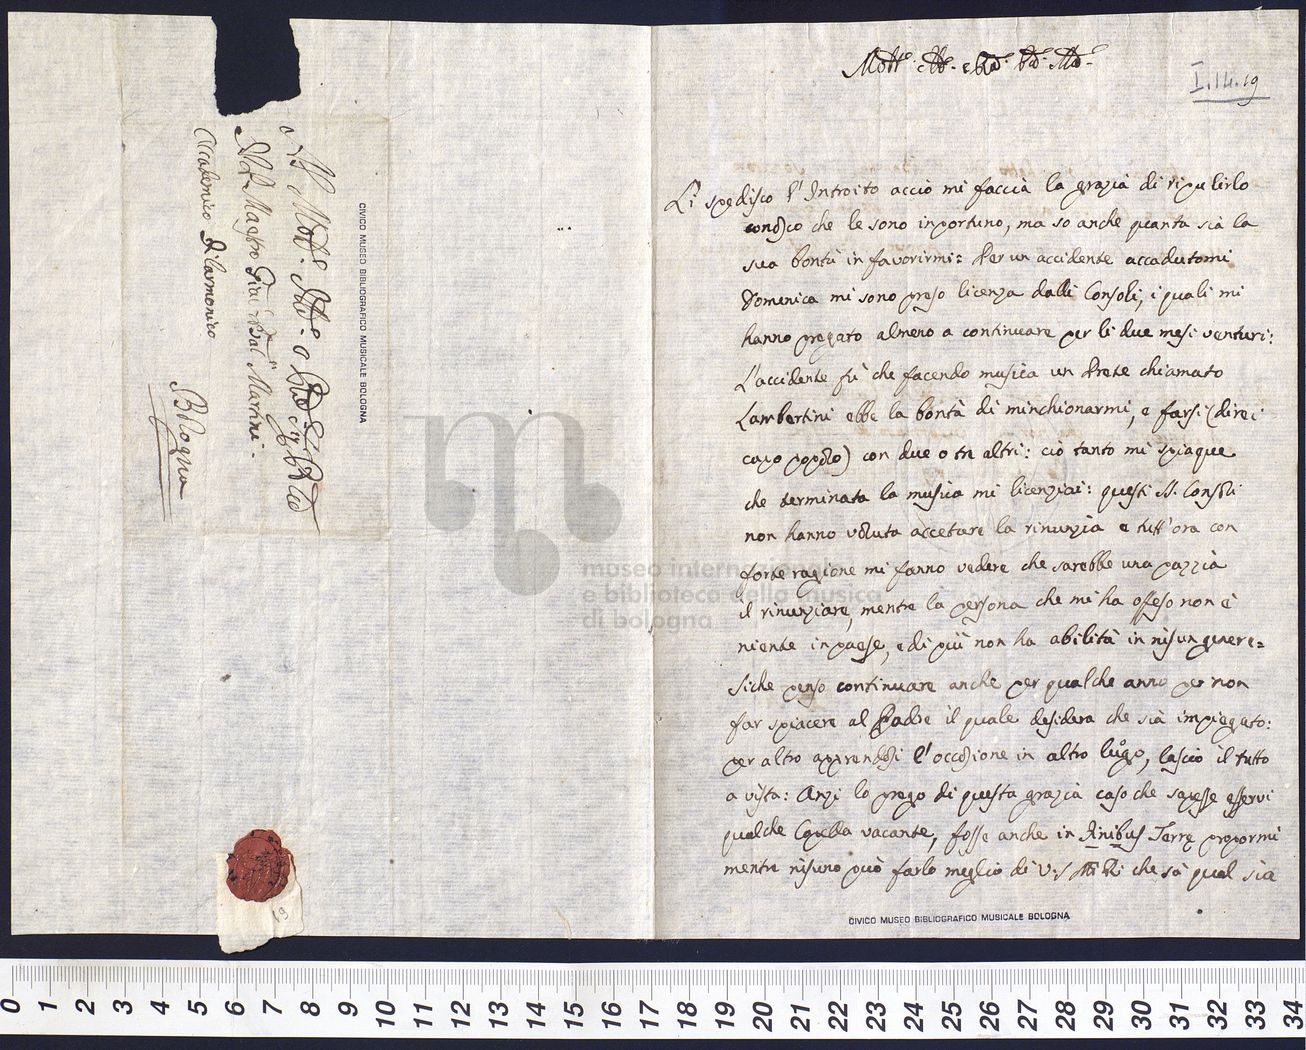 I.14.19
Li spedisco l'Introito acciò mi faccia la grazia di ripulirlo
conosco che le sono inportuno, ma so anche quanta sia la
sua bontà in favorirmi: Per un accidente accadutomi
Domenica mi sono preso licenza dalli Consoli, i quali mi
hanno pregato almeno a continuare per li due mesi venturi:
L'accidente fù che facendo musica un Prete chiamato
Lambertini ebbe la bontà di minchionarmi, e farsi (direi
capo popolo) con due o tre altri: ciò tanto mi spiaque
che terminata la musica mi licenziai: questi SS. Consoli
non hanno voluta accetare la rinunzia e tutt'ora con
forte ragione mi fanno vedere che sarebbe una pazzia
il rinunziare, mentre la persona che mi ha offeso non è
niente in paese, e di più non ha abilità in nisun genere=
Siche penso continuare anche per qualche anno per non
far spiacere al Padre il quale desidera che sia impiegato:
per altro apprendosi l'occasione in altro luogo, lascio il tutto
a vista: Anzi lo prego di questa grazia caso che sapesse esservi
qualche Capella vacante, fosse anche in Finibus Terrę propormi
mentre nisuno può farlo meglio di V.S. che sà qual sia
CIVICO MUSEO BIBLIOGRAFICO MUSICALE BOLOGNA
Maestro Martini
Accademico Filarmonico
Bologna
CIVICO MUSEO BIBLIOGRAFICO MUSICALE BOLOGNA
19
museo internazionale
e biblioteca della musica
di bologna
0 1 2 3 4 5 6 7 8 9 10 11 12 13 14 15 16 17 18 19 20 21 22 23 24 25 26 27 28 29 30 31 32 33 34